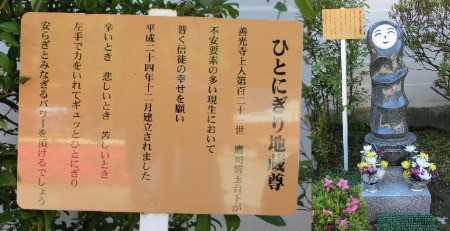 ひとにぎり地蔵尊
善光寺上人第百二十一世 鷹司誓玉台下が
不安要素の多い現生において
普く信徒の幸せを願い
平成二十四年十二月建立されました
辛いとき 悲しいとき 苦しいとき
左手で力をいれてギュッとひとにぎり
安らぎとみなぎるパワーを頂けるでしょう